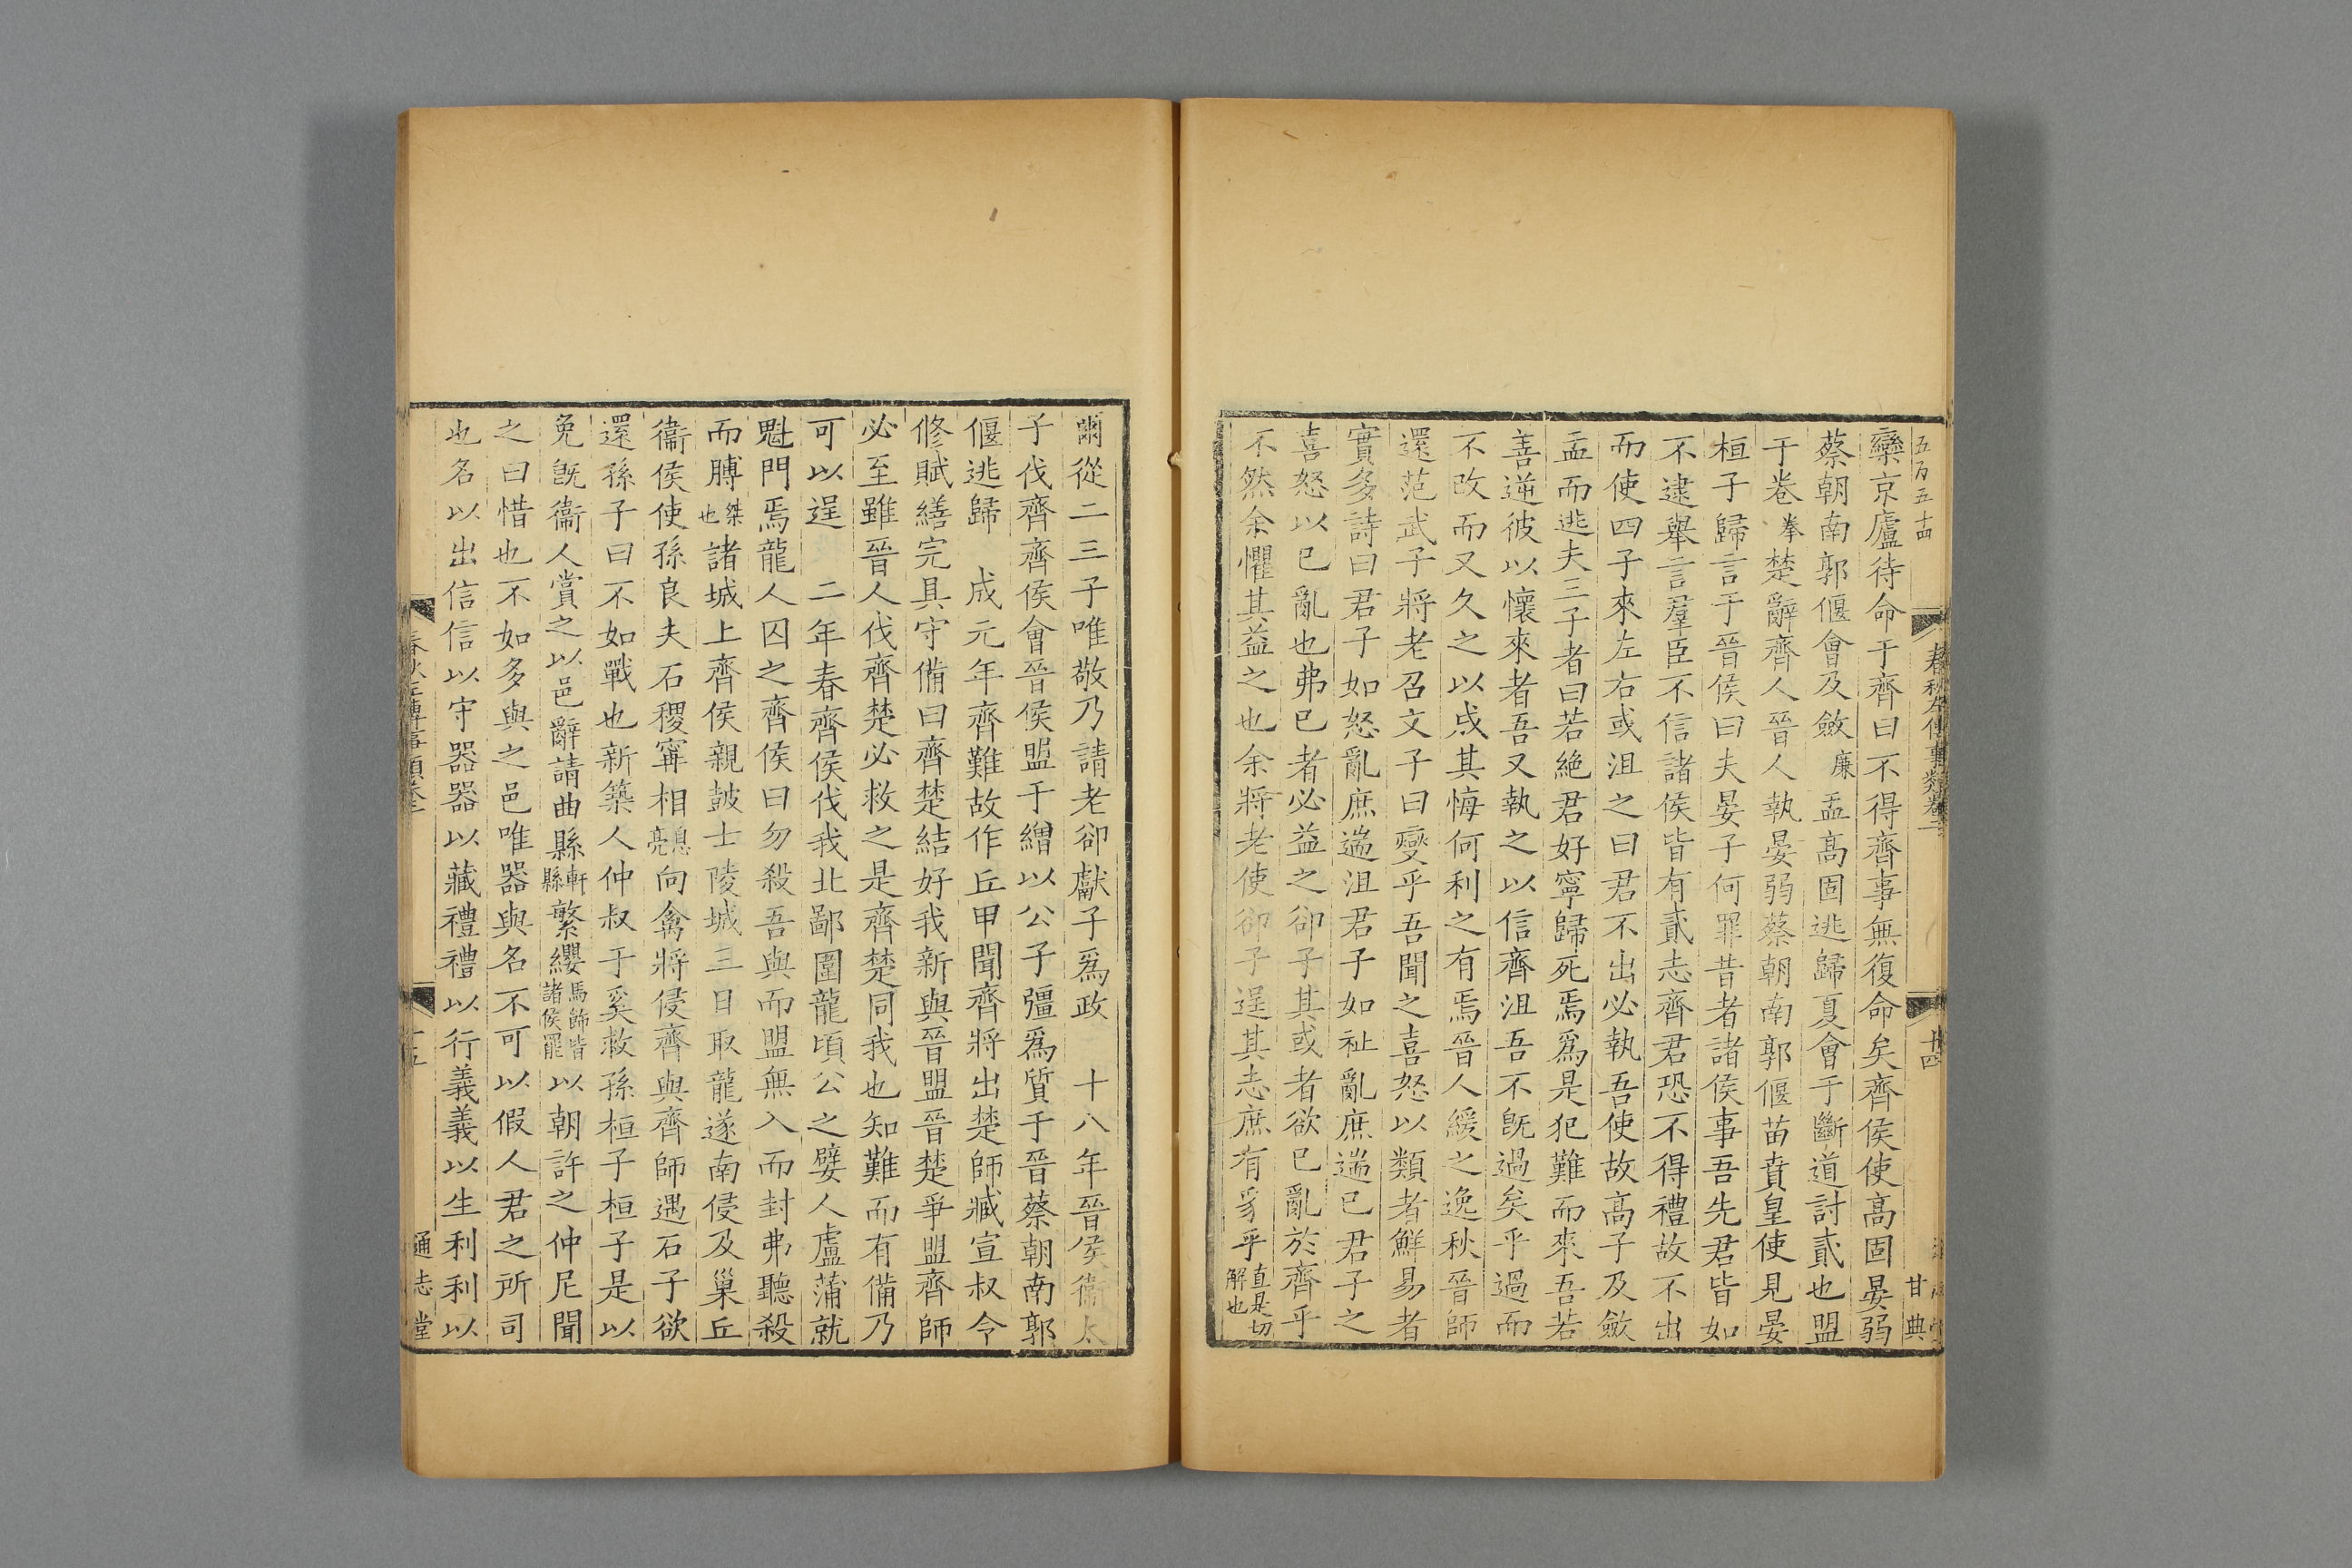 五百五十四
春秋左傳事類卷二
十四
甘典
欒京廬待命于齊曰不得齊事無復命矣齊侯使高固晏弱
蔡朝南郭偃會及斂廉盂高固逃歸夏會于斷道討貳也盟
于卷拳楚辭齊人晉人執晏弱蔡朝南郭偃苗賁皇使見晏
桓子歸言于晉侯曰夫晏子何罪昔者諸侯事吾先君皆如
不逮舉言羣臣不信諸侯皆有貳志齊君恐不得禮故不出
而使四子來左右或沮之曰君不出必執吾使故高子及斂
盂而逃夫三子者曰若絶君好寧歸死焉爲是犯難而來吾若
善逆彼以懷來者吾又執之以信齊沮吾不旣過矣乎過而
不改而又久之以成其悔何利之有焉晉人緩之逸秋晉師
還范武子將老召文子曰燮乎吾聞之喜怒以類者鮮易者
實多詩曰君子如怒亂庶遄沮君子如祉亂庶遄已君子之
喜怒以已亂也弗已者必益之卻子其或者欲已亂於齊乎
不然余懼其益之也余將老使卻子逞其志庶有豸乎直是切解也
爾從二三子唯敬乃請老卻獻子爲政　十八年晉侯衞太
子伐齊齊侯會晉侯盟于繒以公子彊爲質于晉蔡朝南郭
偃逃歸　成元年齊難故作丘甲聞齊將出楚師臧宣叔令
修賦繕完具守備曰齊楚結好我新與晉盟晉楚爭盟齊師
必至雖晉人伐齊楚必救之是齊楚同我也知難而有備乃
可以逞　二年春齊侯伐我北鄙圍龍頃公之嬖人盧蒲就
魁門焉龍人囚之齊侯曰勿殺吾與而盟無入而封弗聽殺
而膊桀也諸城上齊侯親鼓士陵城三日取龍遂南侵及巢丘
衞侯使孫良夫石稷甯相息亮向禽將侵齊與齊師遇石子欲
還孫子曰不如戰也新築人仲叔于奚救孫桓子桓子是以
免旣衞人賞之以邑辭請曲縣軒縣繁纓馬飾皆諸侯罷以朝許之仲尼聞
之曰惜也不如多與之邑唯器與名不可以假人君之所司
也名以出信信以守器器以藏禮禮以行義義以生利利以
春秋左傳事類卷二
十五
通志堂